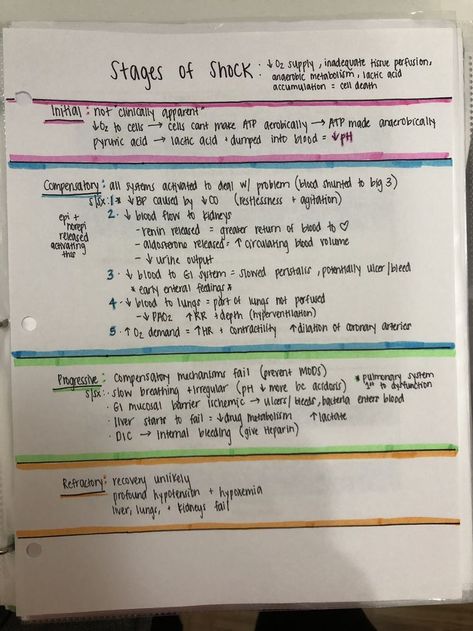 Stages of Shock : ↓ O2 supply, inadequate tissue perfusion,
anaerobic metabolism, lactic acid
accumulation = cell death
Initial : not "clinically apparent"
↓O2 to cells → cells cant make ATP aerobically → ATP made anaerobically
pyruvic acid → lactic acid + dumped into blood = ↓pH
Compensatory: all systems activated to deal w/ problem (blood shunted to big 3)
s/sx: 1 * ↓BP caused by ↓CO (restlessness + agitation)
epi + norepi released activating this
2. ↓ blood flow to kidneys
- renin released = greater return of blood to ♡
- aldosterone released = ↑ circulating blood volume
- ↓ urine output
3. ↓ blood to GI system = slowed peristalsis, potentially ulcer/bleed
* early enteral feedings *
4. ↓ blood to lungs = part of lungs not perfused
- ↓PAO2 ↑RR + depth (hyperventilation)
5. ↑ O2 demand = ↑HR + contractility ↑ dilation of coronary arteries
Progressive: compensatory mechanisms fail (prevent MODS)
s/sx: · slow breathing + irregular (pH ↓ more bc acidosis) * pulmonary system 1st to dysfunction
· GI mucosal barrier ischemic → ulcers/bleeds, bacteria enters blood
· liver starts to fail = ↓drug metabolism ↑ lactate
· DIC → internal bleeding (give Heparin)
Refractory: recovery unlikely
profound hypotension + hypoxemia
liver, lungs, + kidneys fail